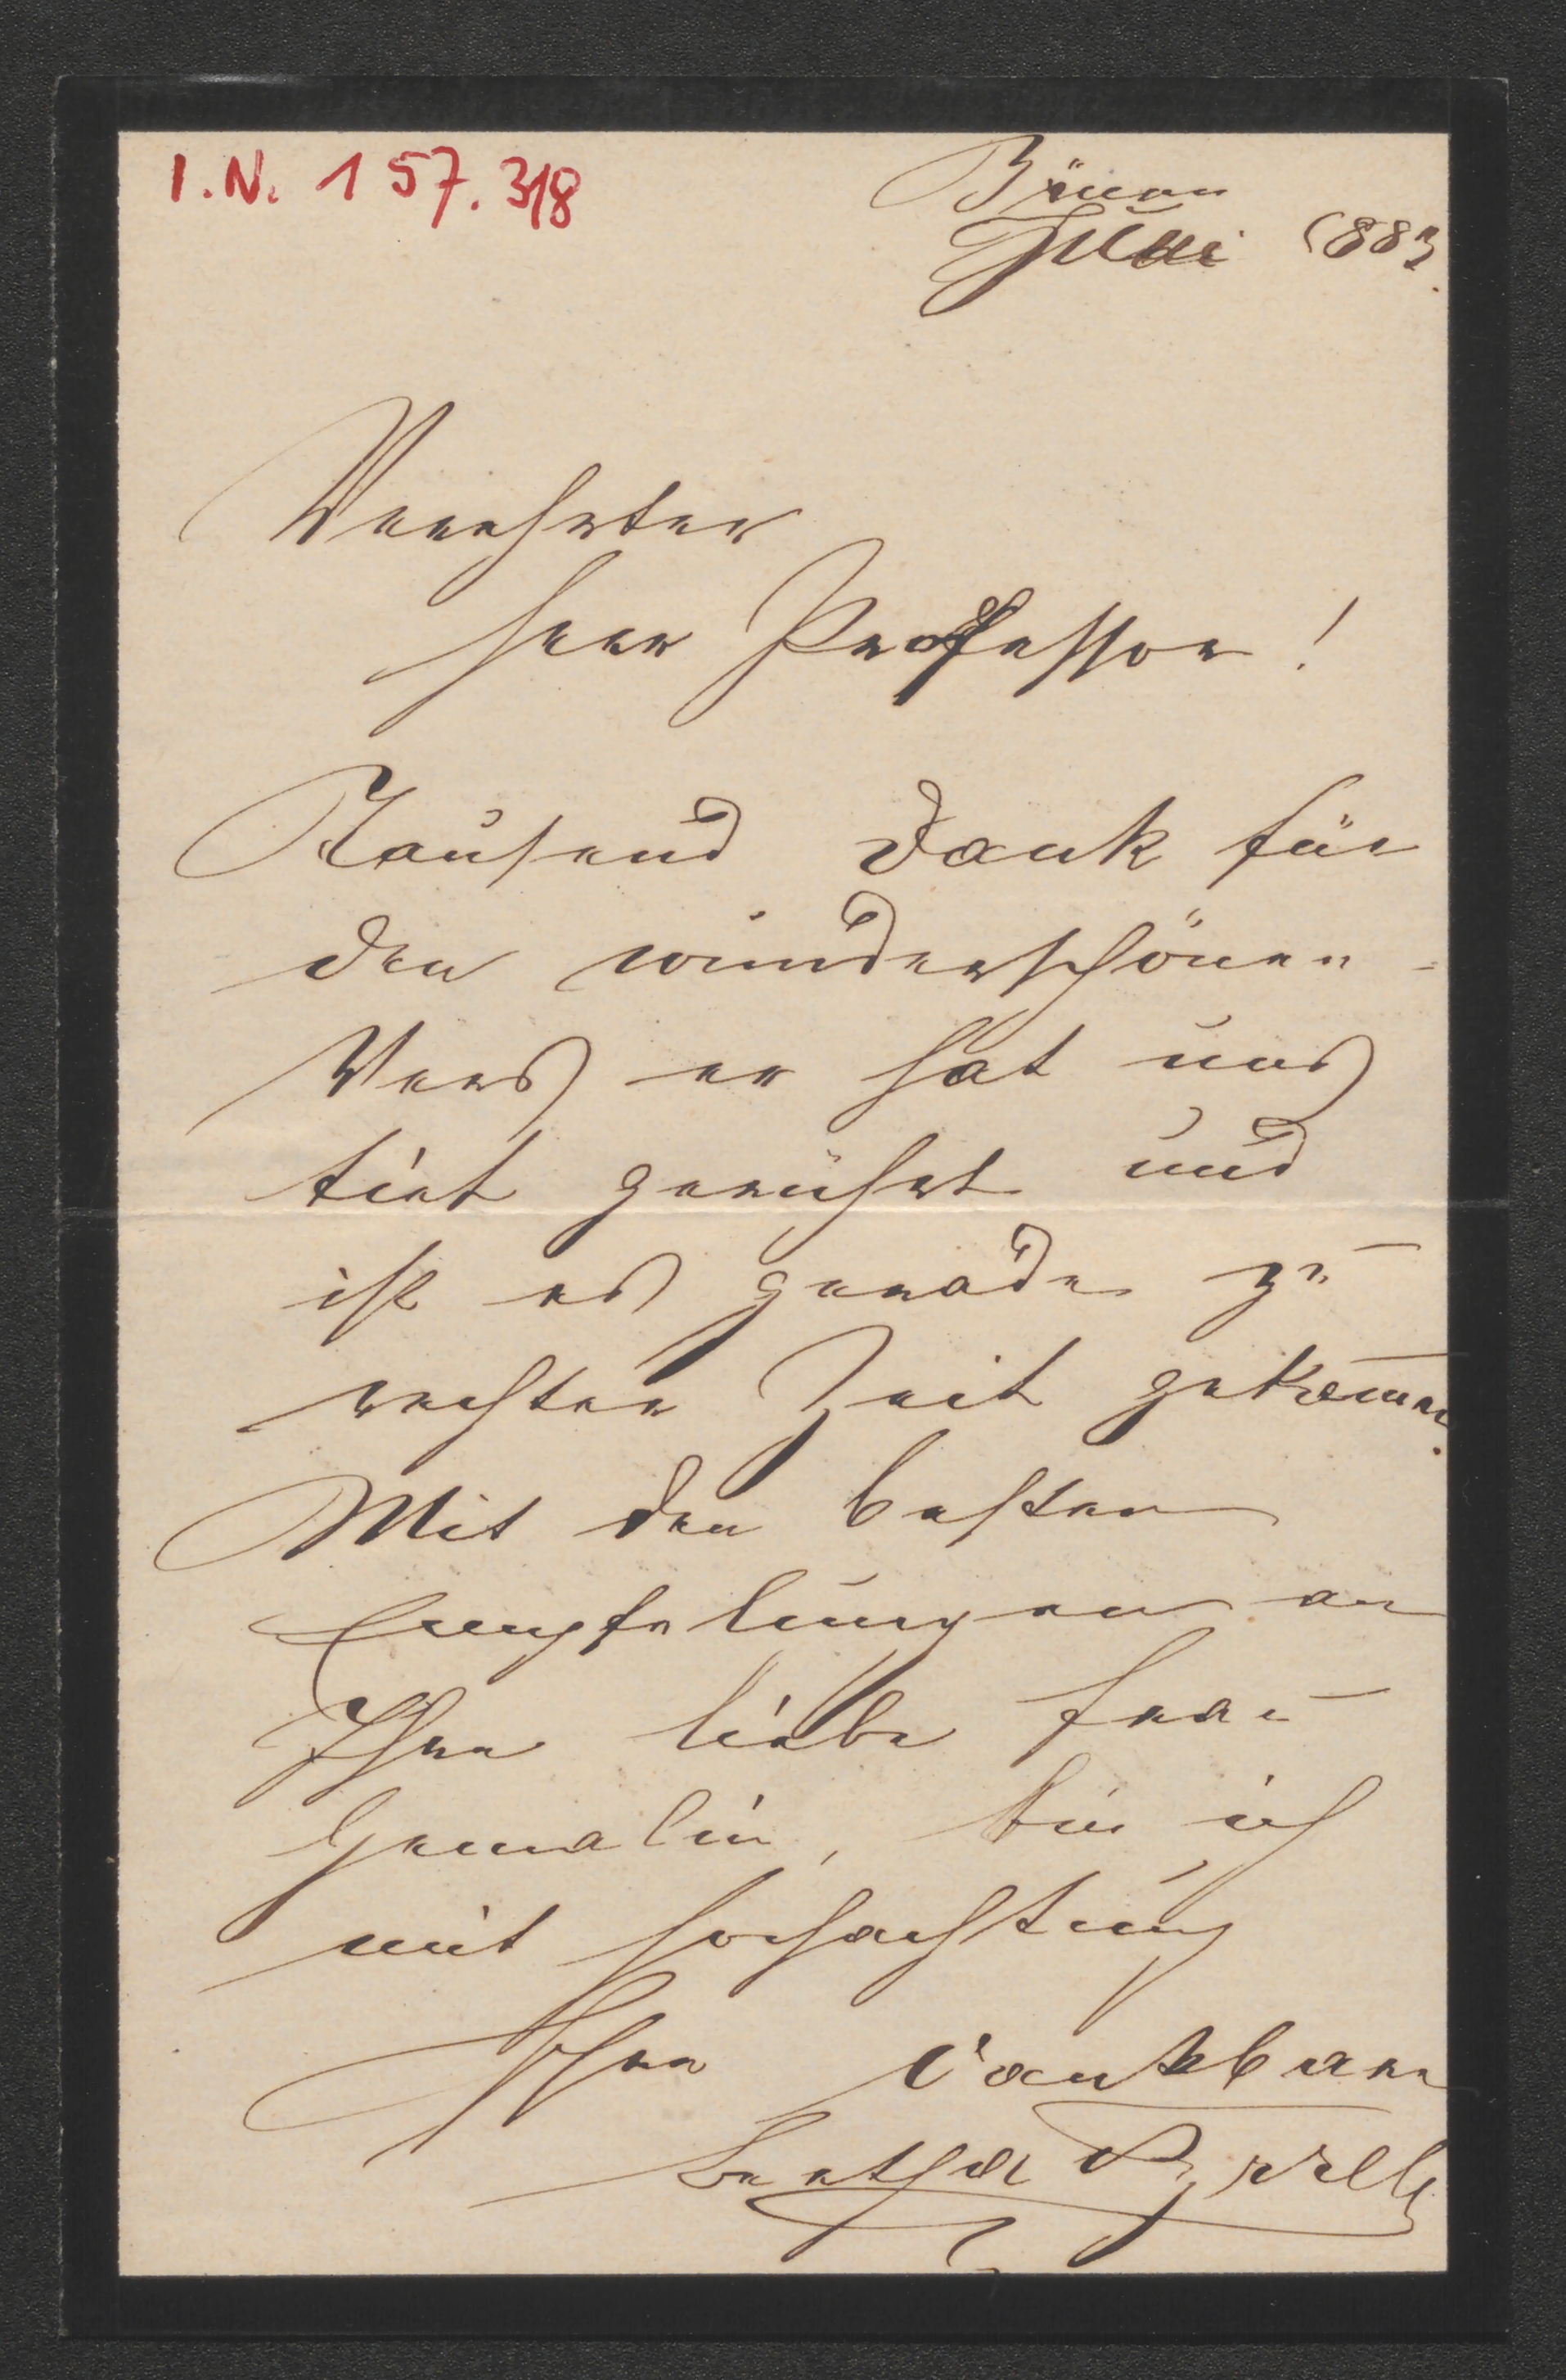 I.N. 157.318
Brünn
Juli 1883.
Verehrter
Herr Professor!
Tausend Dank für
den wunderschönen
Vers er hat uns
tief gerührt und
ist es gerade zu
rechter Zeit gekom̅en.
Mit den besten
Empfelungen an
Ihre liebe Frau
Gemalin, bin ich
mit Hochachtung
Ihre dankbare
Bertha